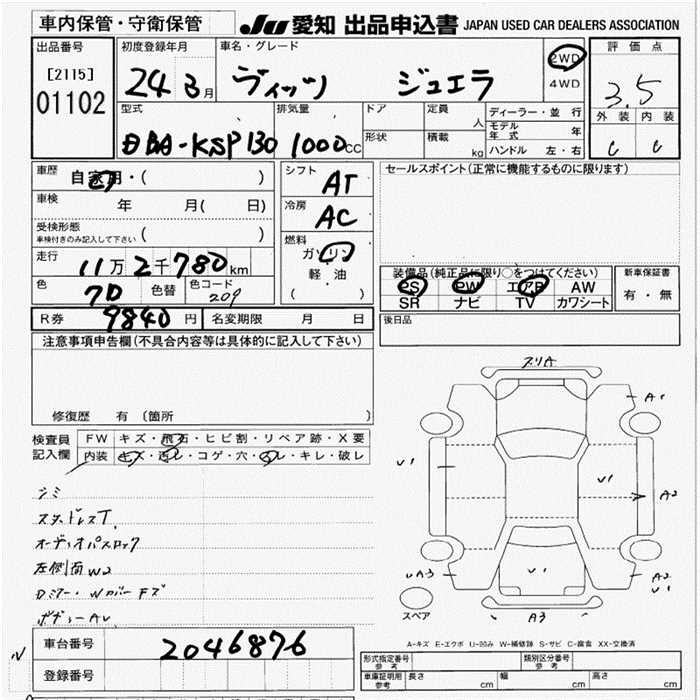 車内保管・守衛保管
JU 愛知 出品申込書 JAPAN USED CAR DEALERS ASSOCIATION
出品番号
[2115]
01102
初度登録年月
24 3月
車名・グレード
ヴィッツ ジュエラ
2WD
4WD
評価点
3.5
外装 内装
C C
型式
DBA-KSP130
排気量
1000cc
ドア
形状
定員 人
積載 kg
ディーラー・並行
モデル年式 年
ハンドル 左・右
車歴 自家用・( )
車検 年 月( 日)
受検形態
車検付きのみ記入して下さい ( )
走行 11万2千780km
色 70 色替 色コード 209
シフト AT
冷房 AC
燃料
ガソリン
軽・油
( )
R券 9840円 名変期限 月 日
セールスポイント(正常に機能するものに限ります)
装備品(純正品に限り○をつけてください)
PS PW エアB AW
SR ナビ TV カワシート
新車保証書
有・無
後日品
注意事項申告欄(不具合内容等は具体的に記入して下さい)
修復歴 有 (箇所 )
検査員記入欄
FW キズ・飛石・ヒビ割・リペア跡・X要
内装 キズ・汚レ・コゲ・穴・スレ・キレ・破レ
シミ
スタッドレスT
オーディオパスロック
左側面W2
Dミラー・WカバーFズ
ボディーAU
フリA
A1
U1
U1
A2
UA3
U1
A2
U1
A3
スペア
A-キズ E-エクボ U-凹み W-補修跡 S-サビ C-腐食 XX-交換済
車台番号 2046876
登録番号
形式指定番号 参考
類別区分番号 参考
車庫証明用 参考
長さ cm 幅 cm 高さ cm